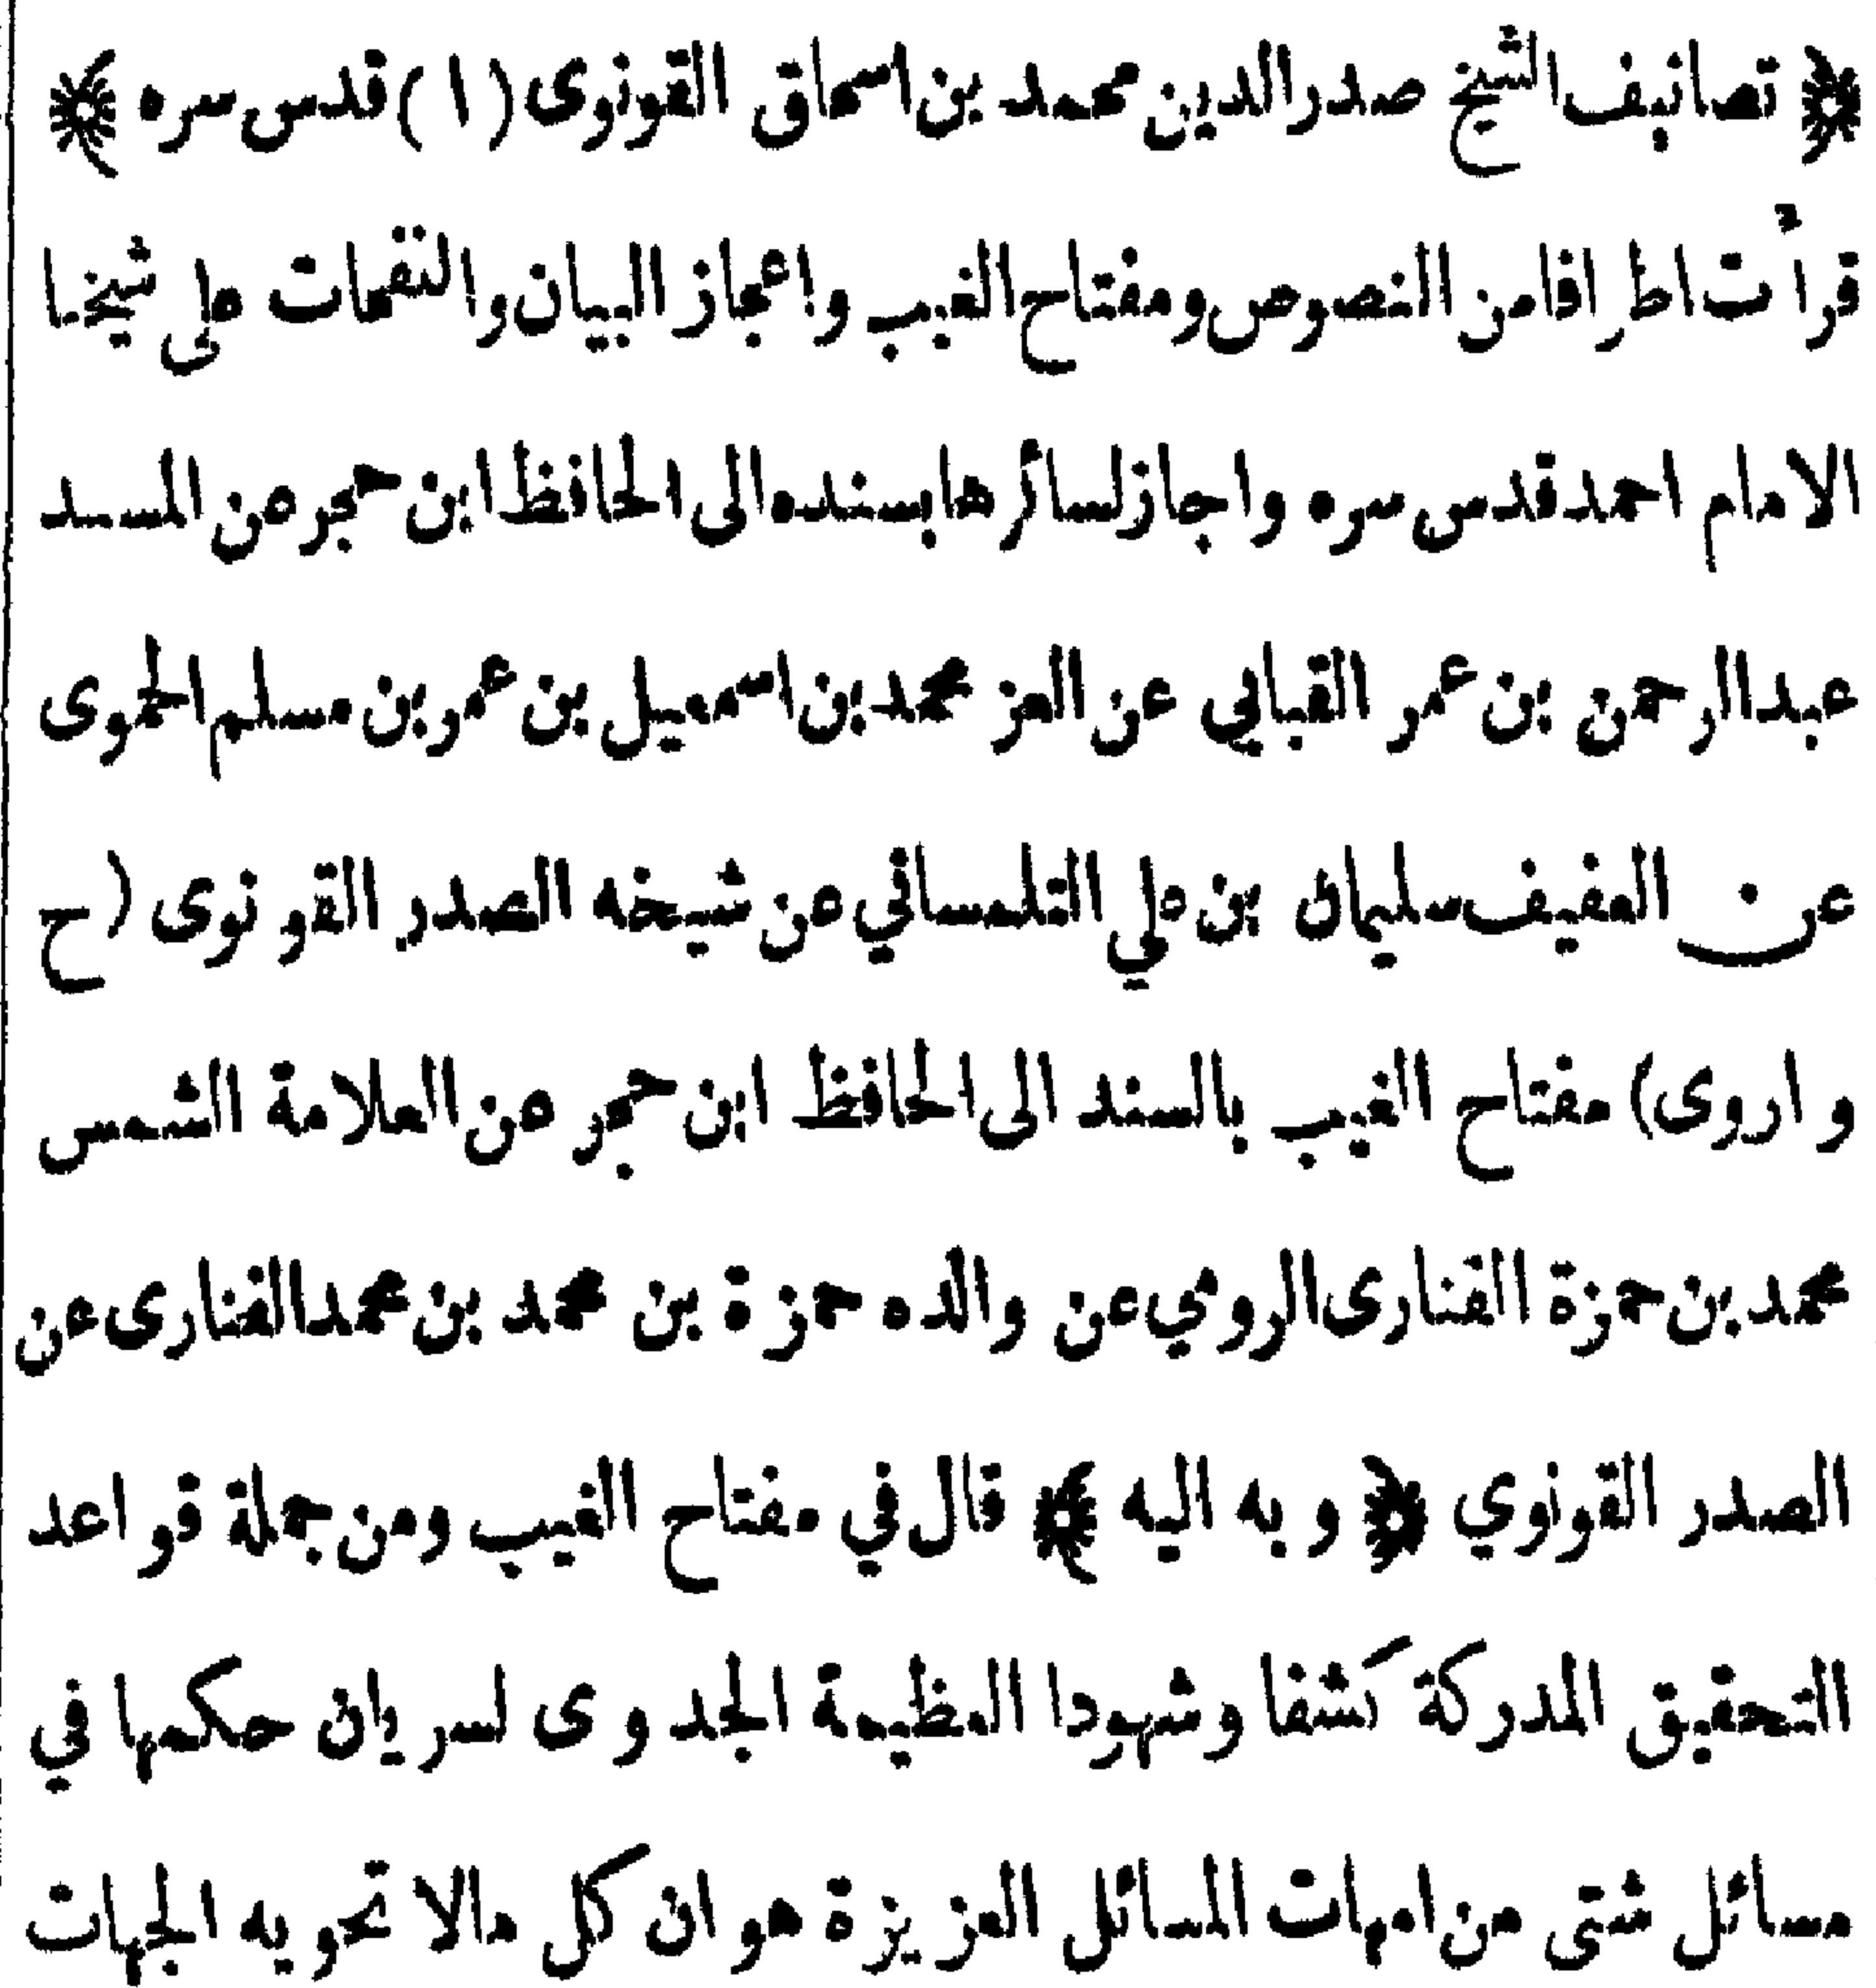 ﴿ تصانيف الشيخ صدر الدين محمد بن اسحاق القونوى (١) قدس سره ﴾
قرأت اطرافا من النصوص ومفتاح الغيب واعجاز البيان والنفحات على شيخنا
الامام احمد قدس سره واجاز لسائرها بسنده الى الحافظ ابن حجر عن المسند
عبد الرحمن بن عمر القبابي عن العز محمد بن اسمعيل بن عمر بن مسلم الحموى
عن العفيف سليمان بن علي التلمساني عن شيخه الصدر القونوى (ح
واروى) مفتاح الغيب بالسند الى الحافظ ابن حجر عن العلامة الشمس
محمد بن حمزة الفنارى الرومي عن والده حمزة بن محمد بن محمد الفنارى عن
الصدر القونوي ﴿ وبه اليه ﴾ قال في مفتاح الغيب ومن جملة قواعد
التحقيق المدركة كشفا وشهودا العظيمة الجدوى لسريان حكمها في
مسائل شتى من امهات المسائل العزيزة هو ان كل مالا تحويه الجهات